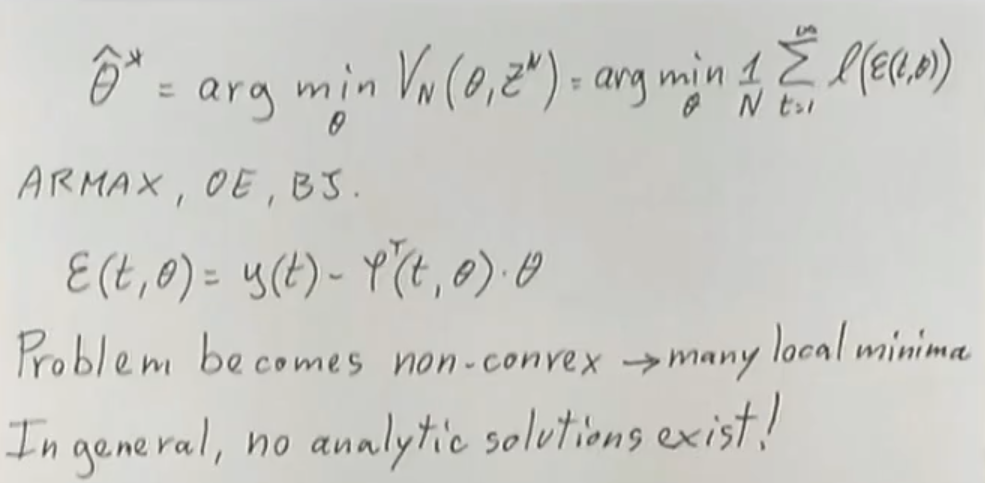 θ̂* = arg min_θ V_N(θ, Z^N) = arg min_θ 1/N ∑_{t=1}^∞ ℓ(ε(t,θ))
ARMAX, OE, BJ.
ε(t,θ) = y(t) - φ^T(t,θ)·θ
Problem becomes non-convex → many local minima
In general, no analytic solutions exist!